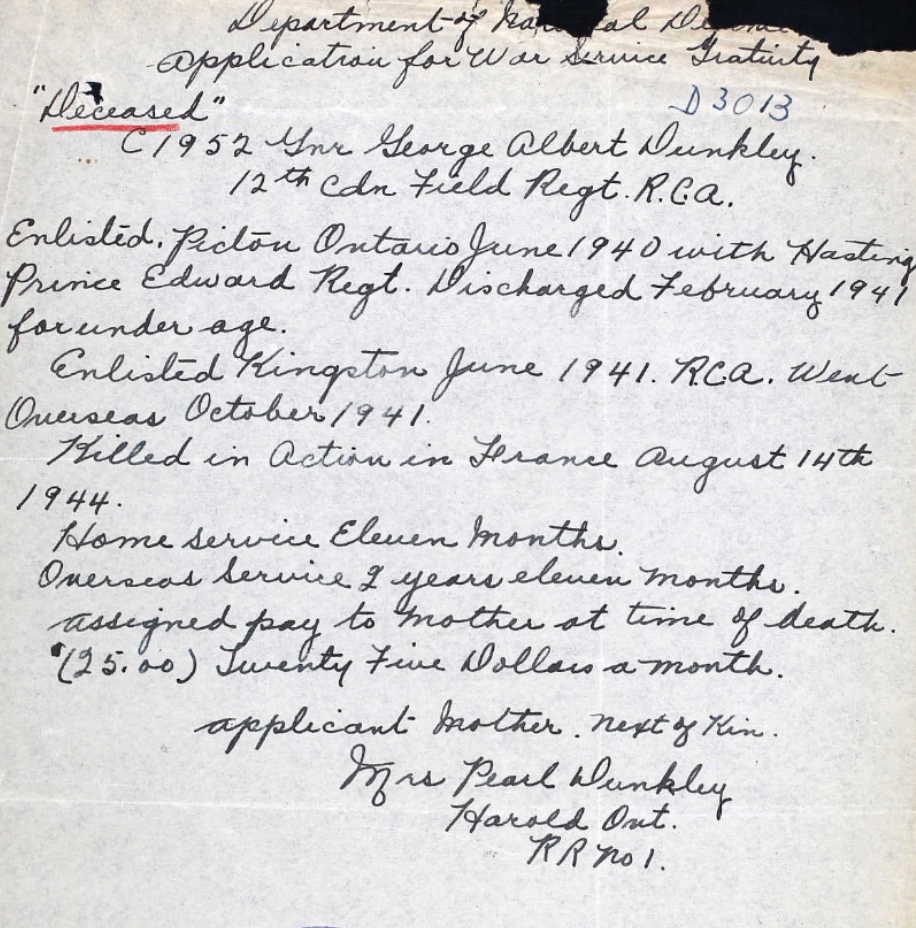 Department of National Defence
Application for War Service Gratuity
"Deceased"
D3013
C1952 Gnr George Albert Dunkley.
12th Cdn Field Regt. R.C.A.
Enlisted. Picton Ontario June 1940 with Hasting
Prince Edward Regt. Discharged February 1941
for under age.
Enlisted Kingston June 1941. R.C.A. Went
Overseas October 1941.
Killed in Action in France August 14th
1944.
Home service Eleven Months.
Overseas Service 2 years eleven months.
assigned pay to Mother at time of death.
(25.00) Twenty Five Dollars a month.
applicant Mother. Next of Kin.
Mrs Pearl Dunkley
Harold Ont.
RR no 1.